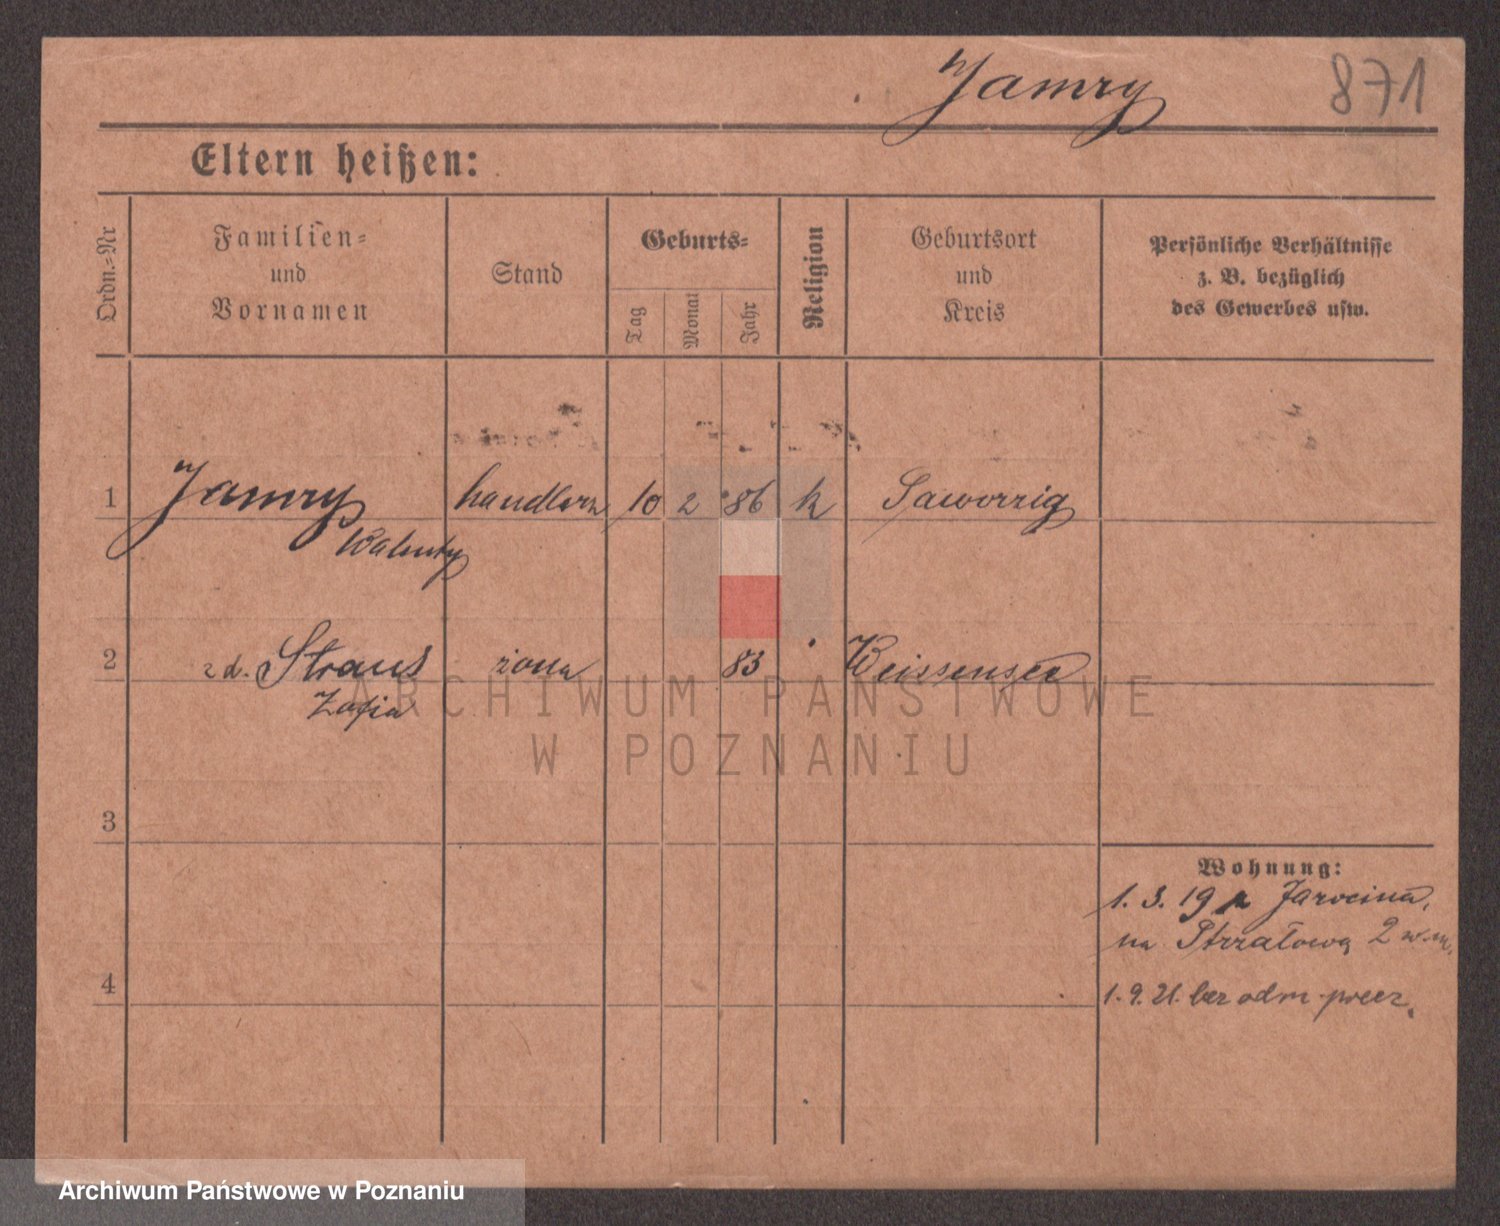 Jamry 871
Eltern heißen:
Ordn.-Nr
Familien-
und
Vornamen
Stand
Geburts-
Tag
Monat
Jahr
Religion
Geburtsort
und
Kreis
Persönliche Verhältnisse
z. B. bezüglich
des Gewerbes usw.
1 Jamry 10 2 86 k
Walenty
2 zd. Straus żona 83 Weissensee
Zofia
ARCHIWUM PAŃSTWOWE
W POZNANIU
3
Wohnung:
1. 3. 19 z Jarocina,
na Strzałową 2 w.m.
4
1. 9. 21. bez odm.
Archiwum Państwowe w Poznaniu